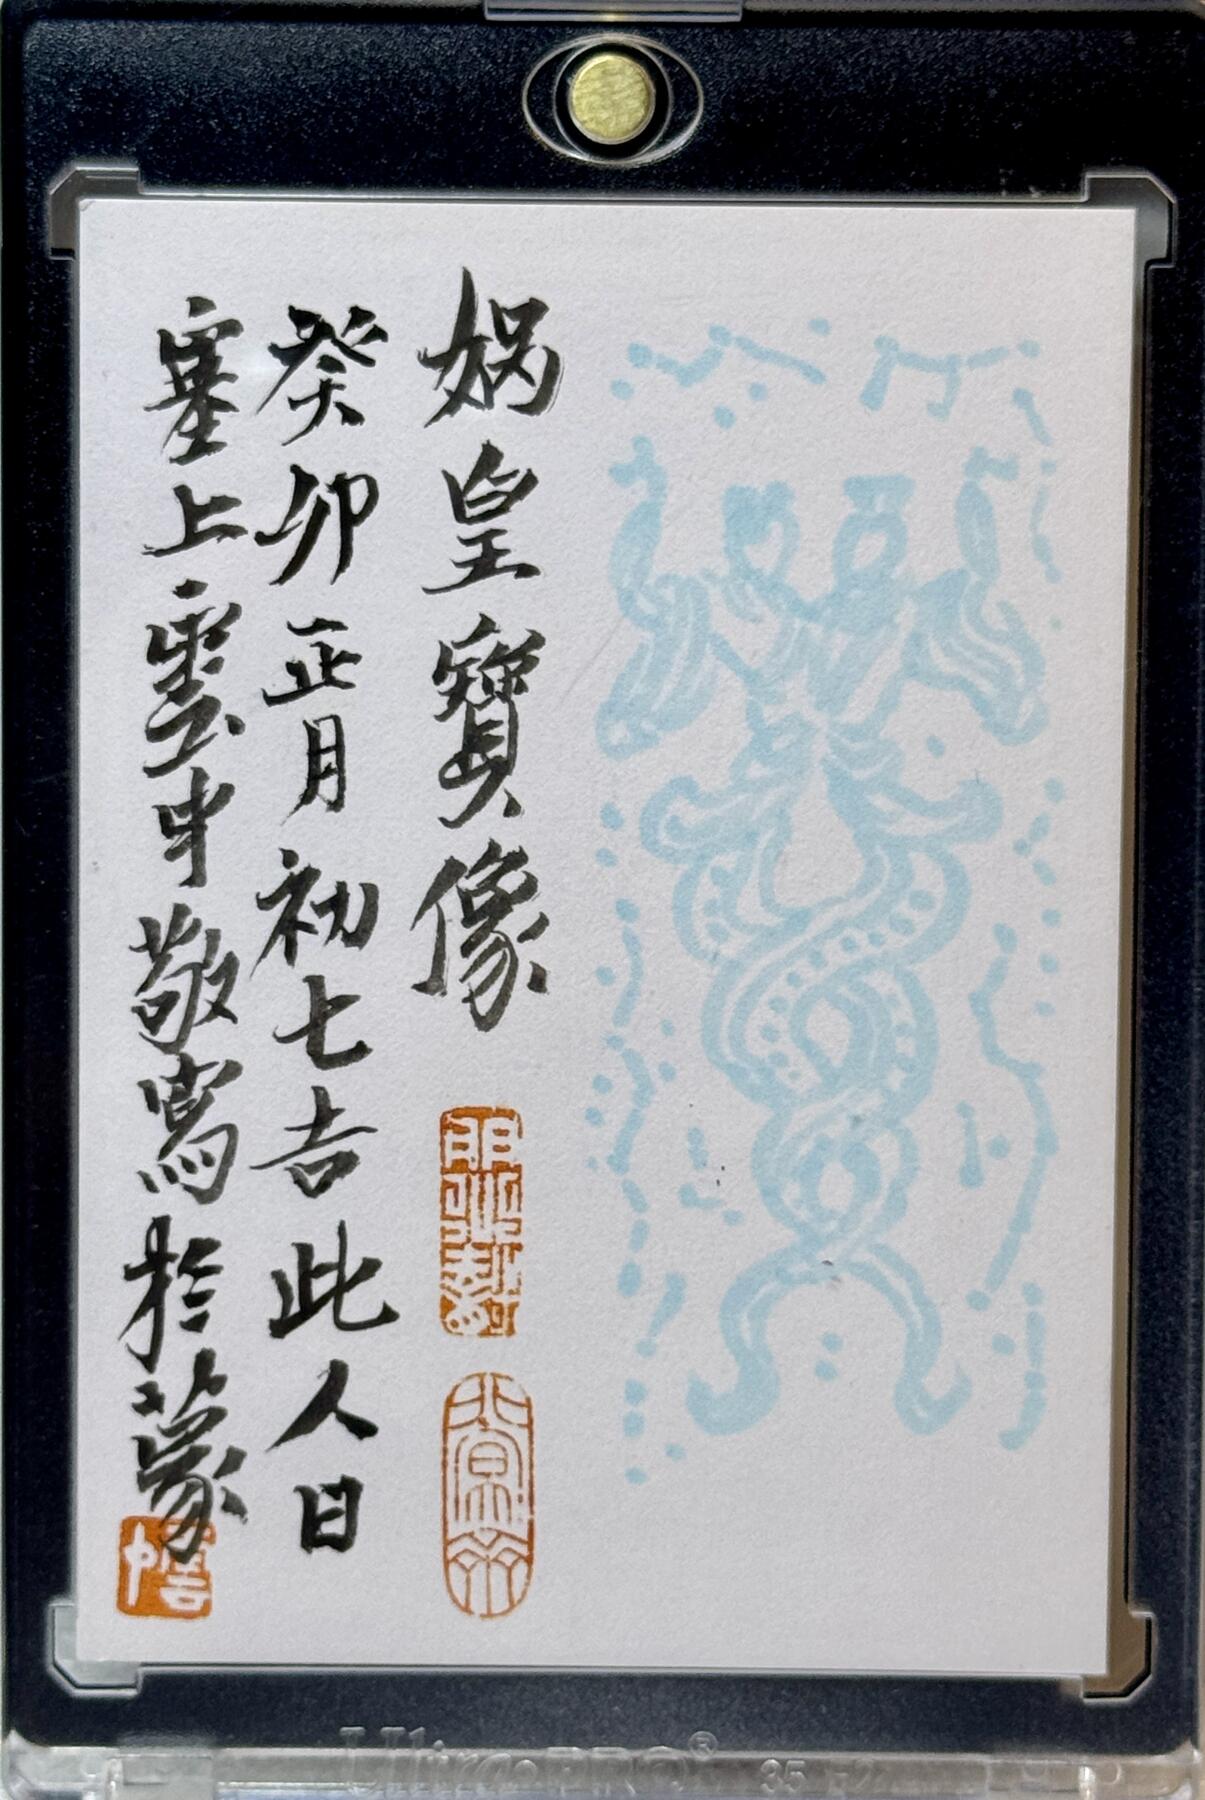 媧皇寶像
癸卯正月初七吉此人日
塞上雲中敬寫於蒙
Ultra·PRO®
35